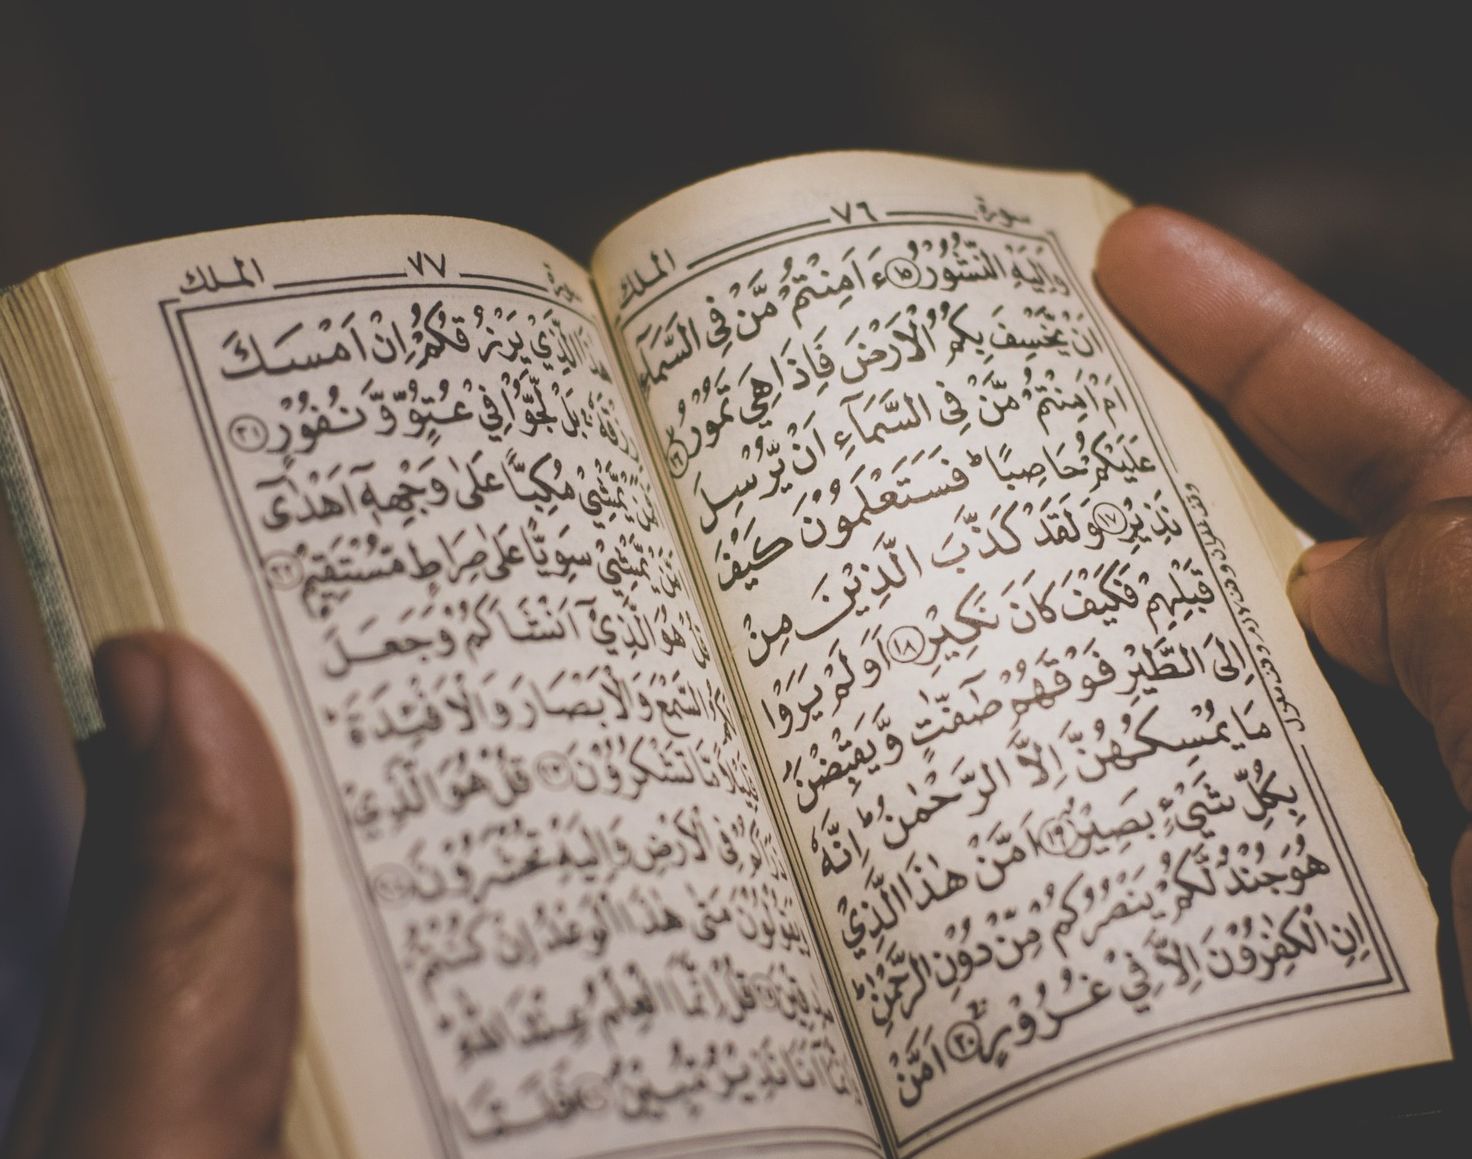 سورة ٧٦ الملك
وَاِلَيْهِ النُّشُوْرُ ۝١٥ ءَاَمِنْتُمْ مَّنْ فِي السَّمَآءِ
اَنْ يَّخْسِفَ بِكُمُ الْاَرْضَ فَاِذَا هِيَ تَمُوْرُ ۝١٦
اَمْ اَمِنْتُمْ مَّنْ فِي السَّمَآءِ اَنْ يُّرْسِلَ
عَلَيْكُمْ حَاصِبًا ؕ فَسَتَعْلَمُوْنَ كَيْفَ
نَذِيْرِ ۝١٧ وَلَقَدْ كَذَّبَ الَّذِيْنَ مِنْ
قَبْلِهِمْ فَكَيْفَ كَانَ نَكِيْرِ ۝١٨ اَوَلَمْ يَرَوْا
اِلَى الطَّيْرِ فَوْقَهُمْ صٰٓفّٰتٍ وَّيَقْبِضْنَ ؕ
مَا يُمْسِكُهُنَّ اِلَّا الرَّحْمٰنُ ؕ اِنَّهٗ
بِكُلِّ شَيْءٍۢ بَصِيْرٌ ۝١٩ اَمَّنْ هٰذَا الَّذِيْ
هُوَ جُنْدٌ لَّكُمْ يَنْصُرُكُمْ مِّنْ دُوْنِ الرَّحْمٰنِ ؕ
اِنِ الْكٰفِرُوْنَ اِلَّا فِيْ غُرُوْرٍ ۝٢٠ اَمَّنْ
سورة ٧٧ الملك
هٰذَا الَّذِيْ يَرْزُقُكُمْ اِنْ اَمْسَكَ
رِزْقَهٗ ۚ بَلْ لَّجُّوْا فِيْ عُتُوٍّ وَّنُفُوْرٍ ۝٢١
يَّمْشِيْ مُكِبًّا عَلٰى وَجْهِهٖٓ اَهْدٰٓى
يَّمْشِيْ سَوِيًّا عَلٰى صِرَاطٍ مُّسْتَقِيْمٍ ۝٢٢
هُوَ الَّذِيْٓ اَنْشَاَكُمْ وَجَعَلَ
السَّمْعَ وَالْاَبْصَارَ وَالْاَفْئِدَةَ ؕ
مَّا تَشْكُرُوْنَ ۝٢٣ قُلْ هُوَ الَّذِيْ
فِي الْاَرْضِ وَاِلَيْهِ تُحْشَرُوْنَ ۝٢٤
وَيَقُوْلُوْنَ مَتٰى هٰذَا الْوَعْدُ اِنْ كُنْتُمْ
صٰدِقِيْنَ ۝٢٥ قُلْ اِنَّمَا الْعِلْمُ عِنْدَ اللّٰهِ ۪
اَنَا نَذِيْرٌ مُّبِيْنٌ ۝٢٦ فَلَمَّا